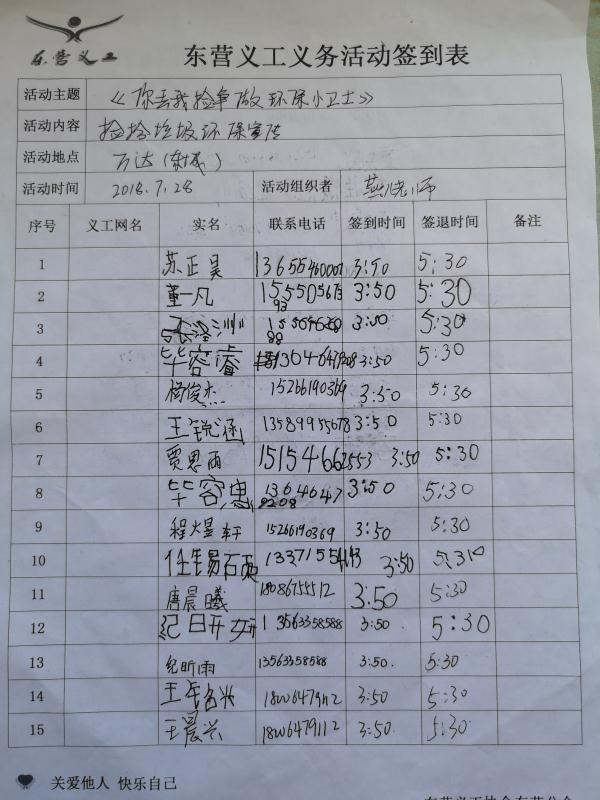 东营义工
东营义工义务活动签到表
活动主题 《你丢我捡争做环保小卫士》
活动内容 捡垃圾环保宣传
活动地点 万达(东城)
活动时间 2018.7.28 活动组织者 燕老师
序号 义工网名 实名 联系电话 签到时间 签退时间 备注
1 苏正昊 13655460007 3:50 5:30
2 董一凡 3:50 5:30
3 3:50 5:30
4 毕容睿 3:50 5:30
5 杨俊杰 15266190369 3:50 5:30
6 王锐涵 13589955678 3:50 5:30
7 贾思雨 15154662553 3:50 5:30
8 毕容惠 1364647 8208 3:50 5:30
9 程煜轩 15266190369 3:50 5:30
10 任锡 3:50 5:30
11 唐晨曦 18086755512 3:50 5:30
12 纪日开妍 13563358588 3:50 5:30
13 纪昕雨 13563358588 3:50. 5:30
14 王 18006479112 3:50 5:30
15 王晨兴 18006479112 3:50. 5:30
关爱他人 快乐自己